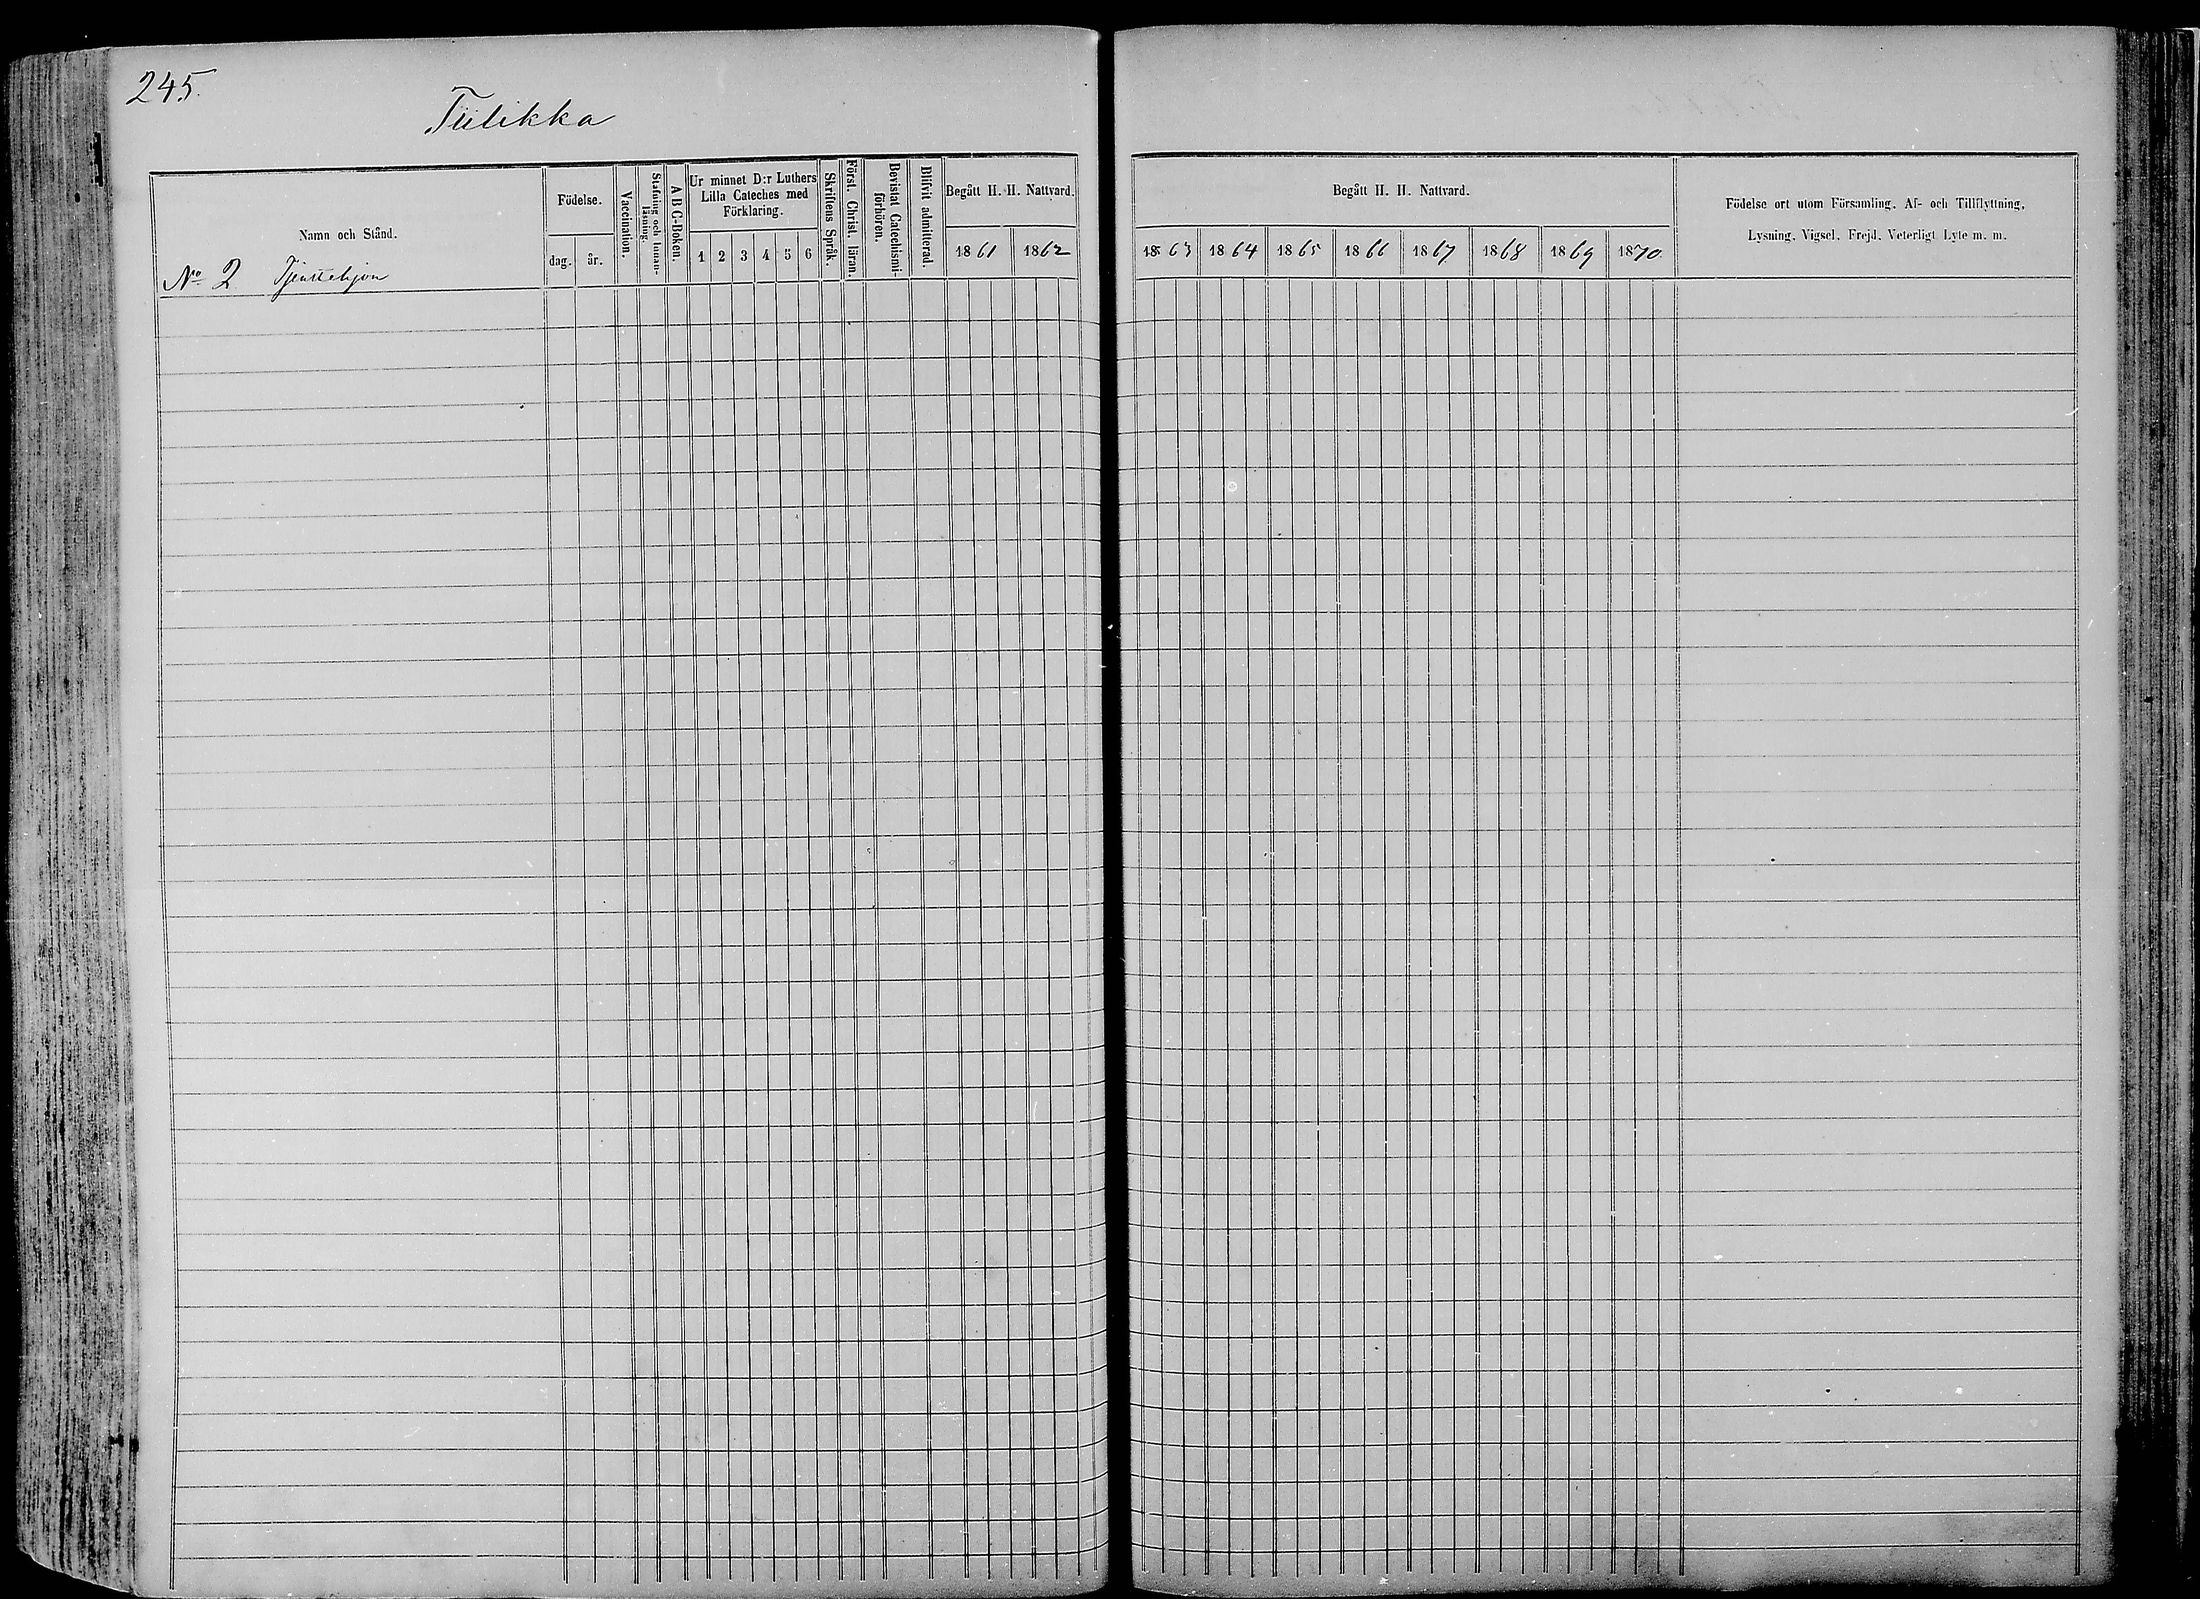 245.
Tiilikka
Namn och Stånd.
No 2 Tjenstehjon
Födelse.
dag. år.
Vaccination.
Stafning och Innan-
läsning.
A B C-Boken.
Ur minnet D:r Luthers
Lilla Cateches med
Förklaring.
1 2 3 4 5 6
Skriftens Språk.
Först. Christ. läran.
Bevistat Catechismi-
förhören.
Blifvit admitterad.
Begått H. H. Nattvard.
1861 1862
Begått H. H. Nattvard.
1863 1864 1865 1866 1867 1868 1869 1870
Födelse ort utom Församling. Af- och Tillflyttning,
Lysning, Vigsel, Frejd, Veterligt Lyte m. m.